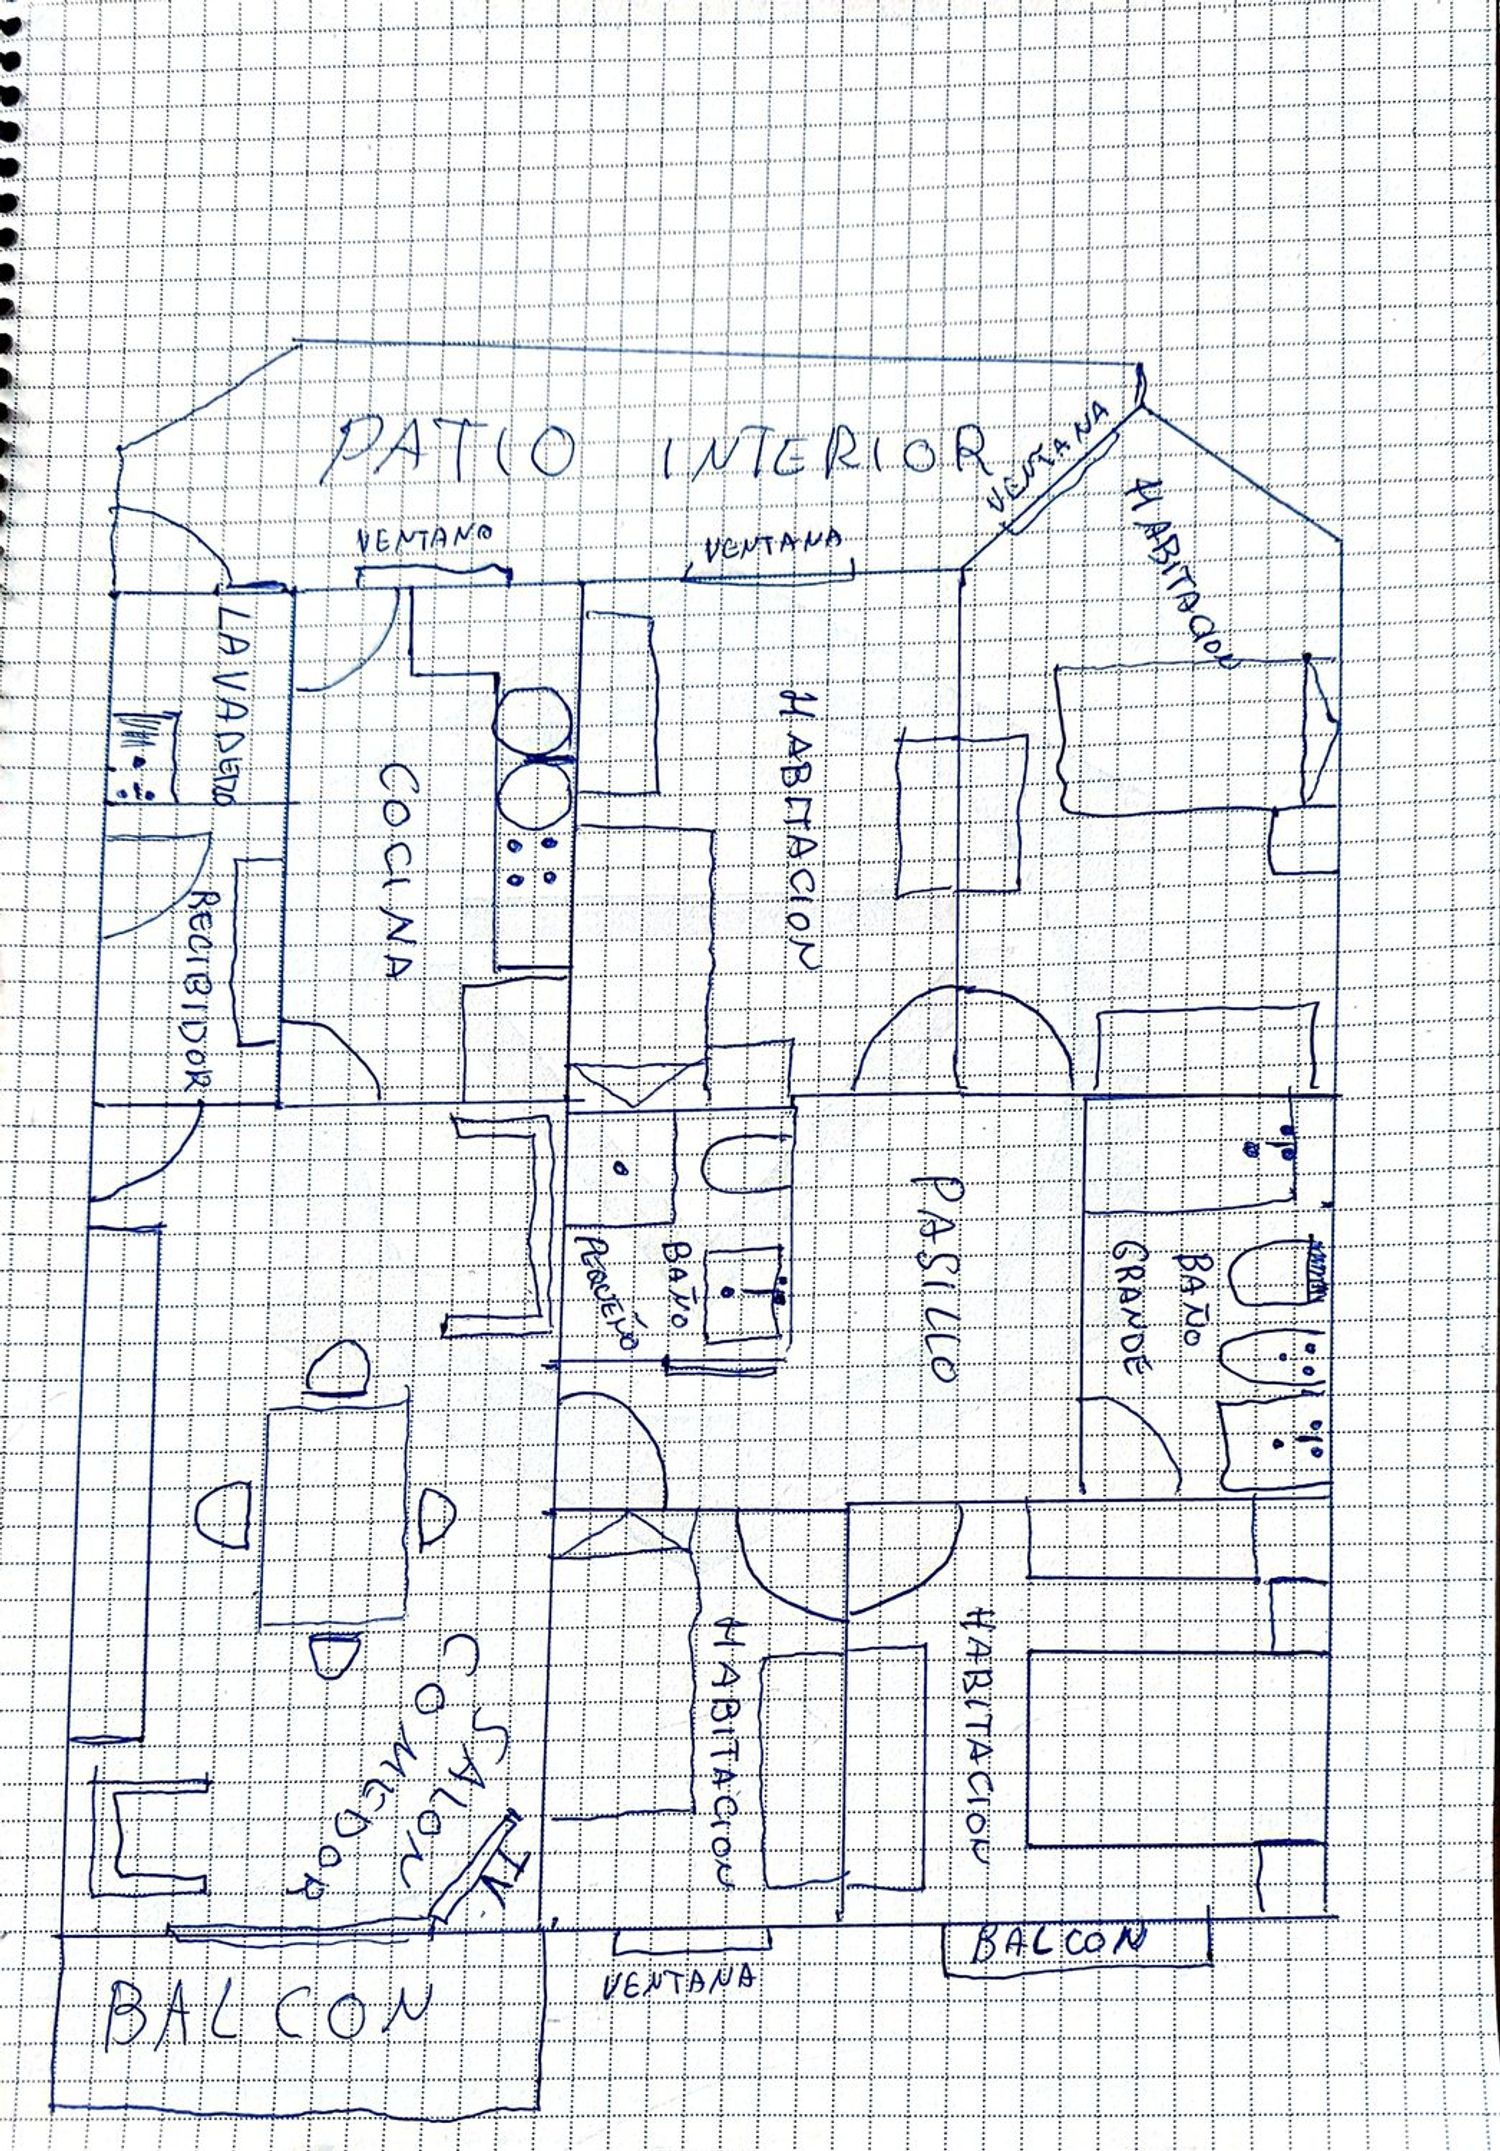 PATIO INTERIOR
VENTANA
VENTANA
VENTANA
HABITACION
LAVADERO
COCINA
HABITACION
RECIBIDOR
PASILLO
BAÑO
PEQUEÑO
BAÑO
GRANDE
SALON
COMEDOR
TV
HABITACION
HABITACION
BALCON
VENTANA
BALCON